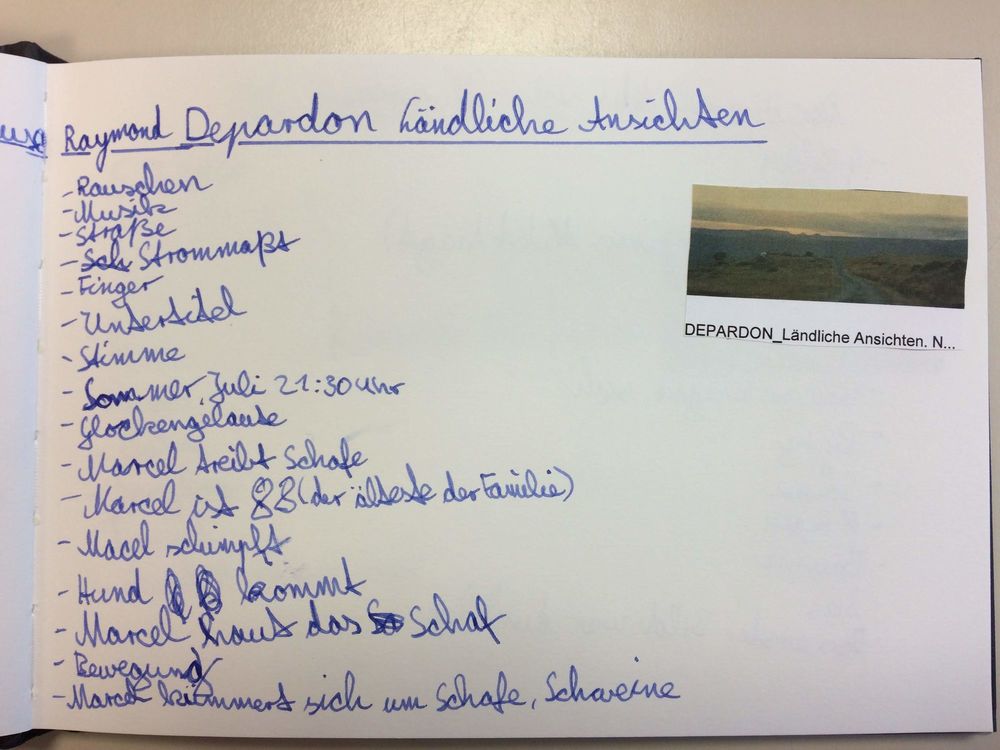 Raymond Depardon Ländliche Ansichten
- Rauschen
- Musik
- Straße
- Strommaßt
- Finger
- Untertitel
- Stimme
- Sommer, Juli 21:30 Uhr
- Glockengeläute
- Marcel treibt Schafe
- Marcel ist 88 (der älteste der Familie)
- Macel schimpft
- Hund kommt
- Marcel haut das Schaf
- Bewegung
- Marcel kümmert sich um Schafe, Schweine
DEPARDON_Ländliche Ansichten. N...